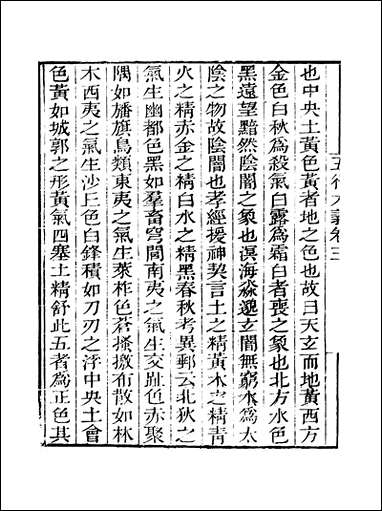 五行大義卷三
也中央土黃色黃者地之色也故曰天玄而地黃西方
金色白秋為殺氣白露為霜白者喪之象也北方水色
黑遠望黯然陰闇之象也溟海淼邈玄闇無窮水為太
陰之物故陰闇也孝經援神契言土之精黃木之精青
火之精赤金之精白水之精黑春秋考異郵云北狄之
氣生幽都色黑如羣畜穹閭南夷之氣生交趾色赤聚
隅如旛旗鳥類東夷之氣生萊柞色蒼搔撽布散如林
木西夷之氣生沙丘色白鋒積如刀刃之浮中央土會
色黃如城郭之形黃氣四塞土精舒此五者為正色其